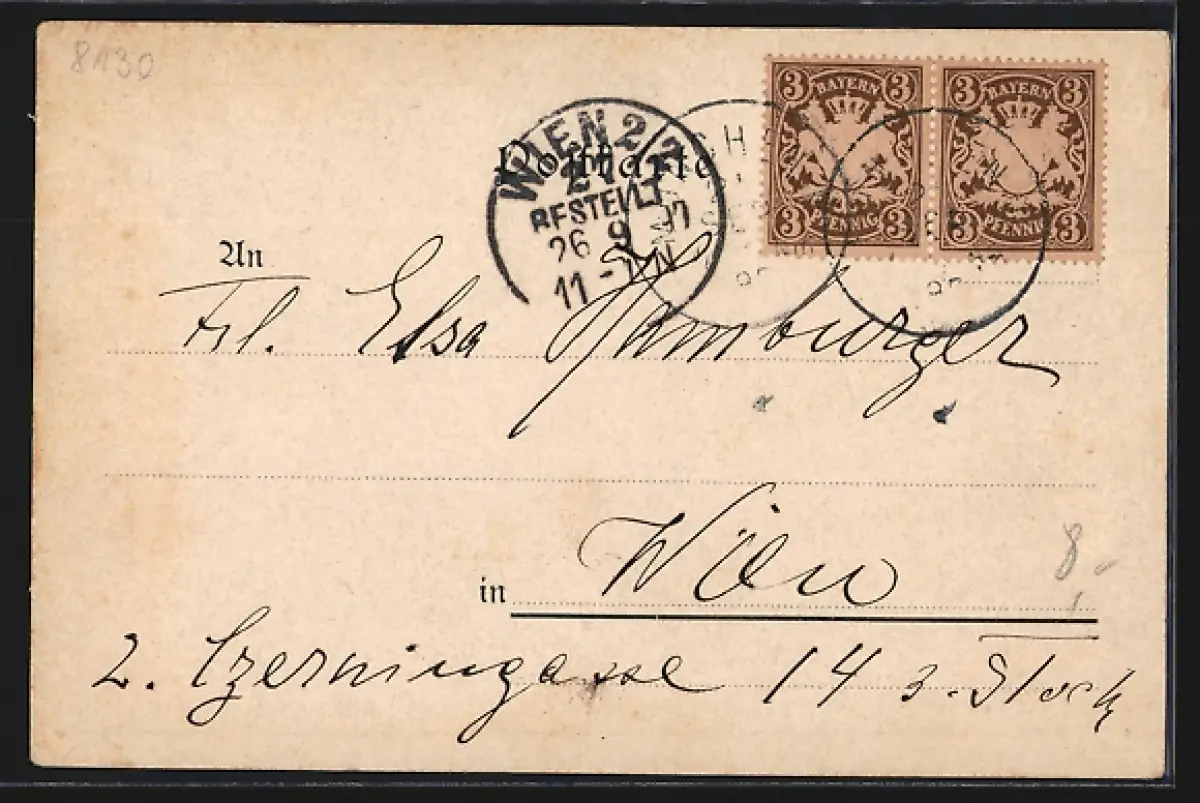 8130
3 BAYERN 3
3 PFENNIG 3
3 BAYERN 3
3 PFENNIG 3
WIEN 2/1
BESTELLT
26 9 97
11-
Postkarte
An
Frl. Elsa Hamburger
in Wien
8.-
2. Czerningasse 14 3. Stock